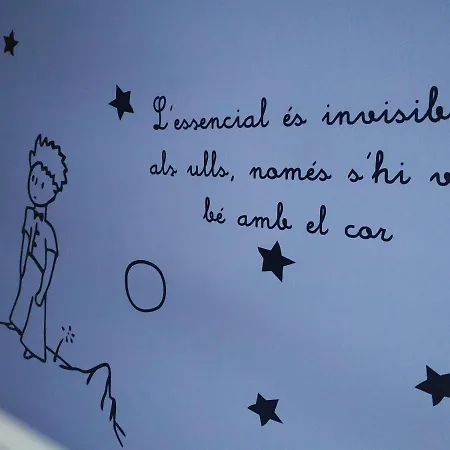 L'essencial és invisib
als ulls, només s'hi v
bé amb el cor